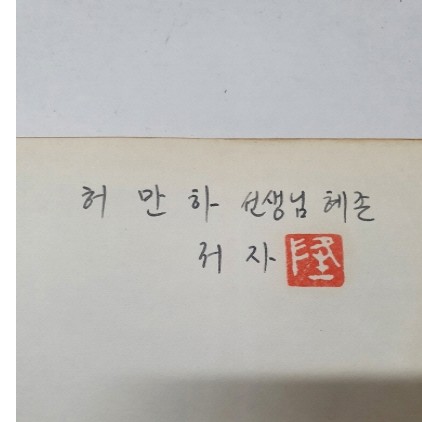 허만하 선생님 혜존
저자 陸